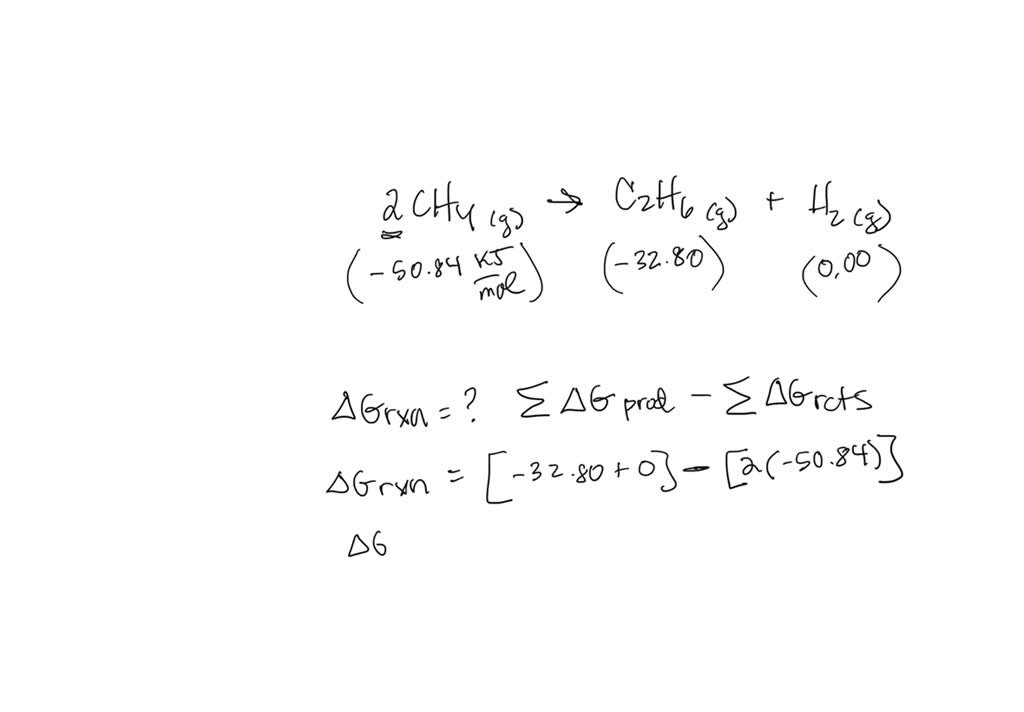 2CH4 (g) → C2H6 (g) + H2 (g)
(-50.84 KJ/mol) (-32.80) (0.00)
ΔGrxn = ? Σ ΔG prod - Σ ΔGrcts
ΔGrxn = [-32.80 + 0] - [2(-50.84)]
ΔG